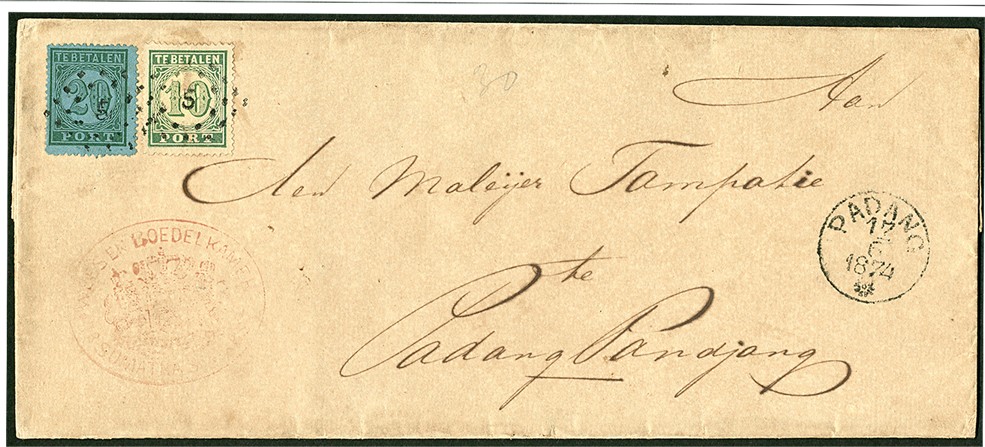 TE BETALEN
20
PORT
TE BETALEN
10
5
PORT
30
Aan
den Maleijer Tampatie
te
Padang Pandjang
PADANG
17
6
1874
EN BOEDELKAME
SUMATRA